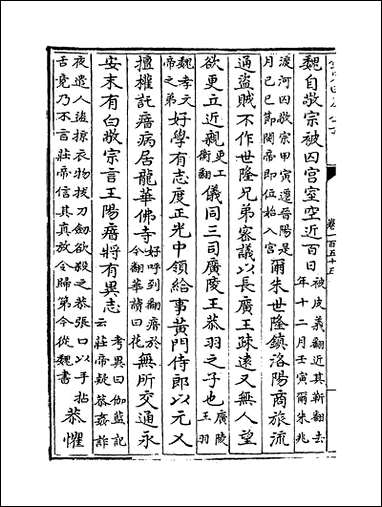 魏自敬宗被囚宮室空近百日被皮義翻近其靳翻去年十二月壬寅爾朱兆
渡河囚敬宗甲寅遷晉陽是月己巳節閔帝即位始入宮爾朱世隆鎮洛陽商旅流
通盜賊不作世隆兄弟密議以長廣王疎遠又無人望
欲更立近親更工衡翻儀同三司廣陵王恭羽之子也廣陵王羽
魏孝文帝之弟好學有志度正光中領給事黃門侍郎以元乂
擅權託瘖病居龍華佛寺好呼到翻瘖於今翻華讀曰花無所交通永
安末有白敬宗言王陽瘖將有異志考異曰伽藍記云莊帝疑恭姦詐
夜遣人盜掠衣物拔刀劍欲殺之恭張口以手拈舌竟乃不言莊帝信其真放令歸第今從魏書恭懼
卷一百五十五